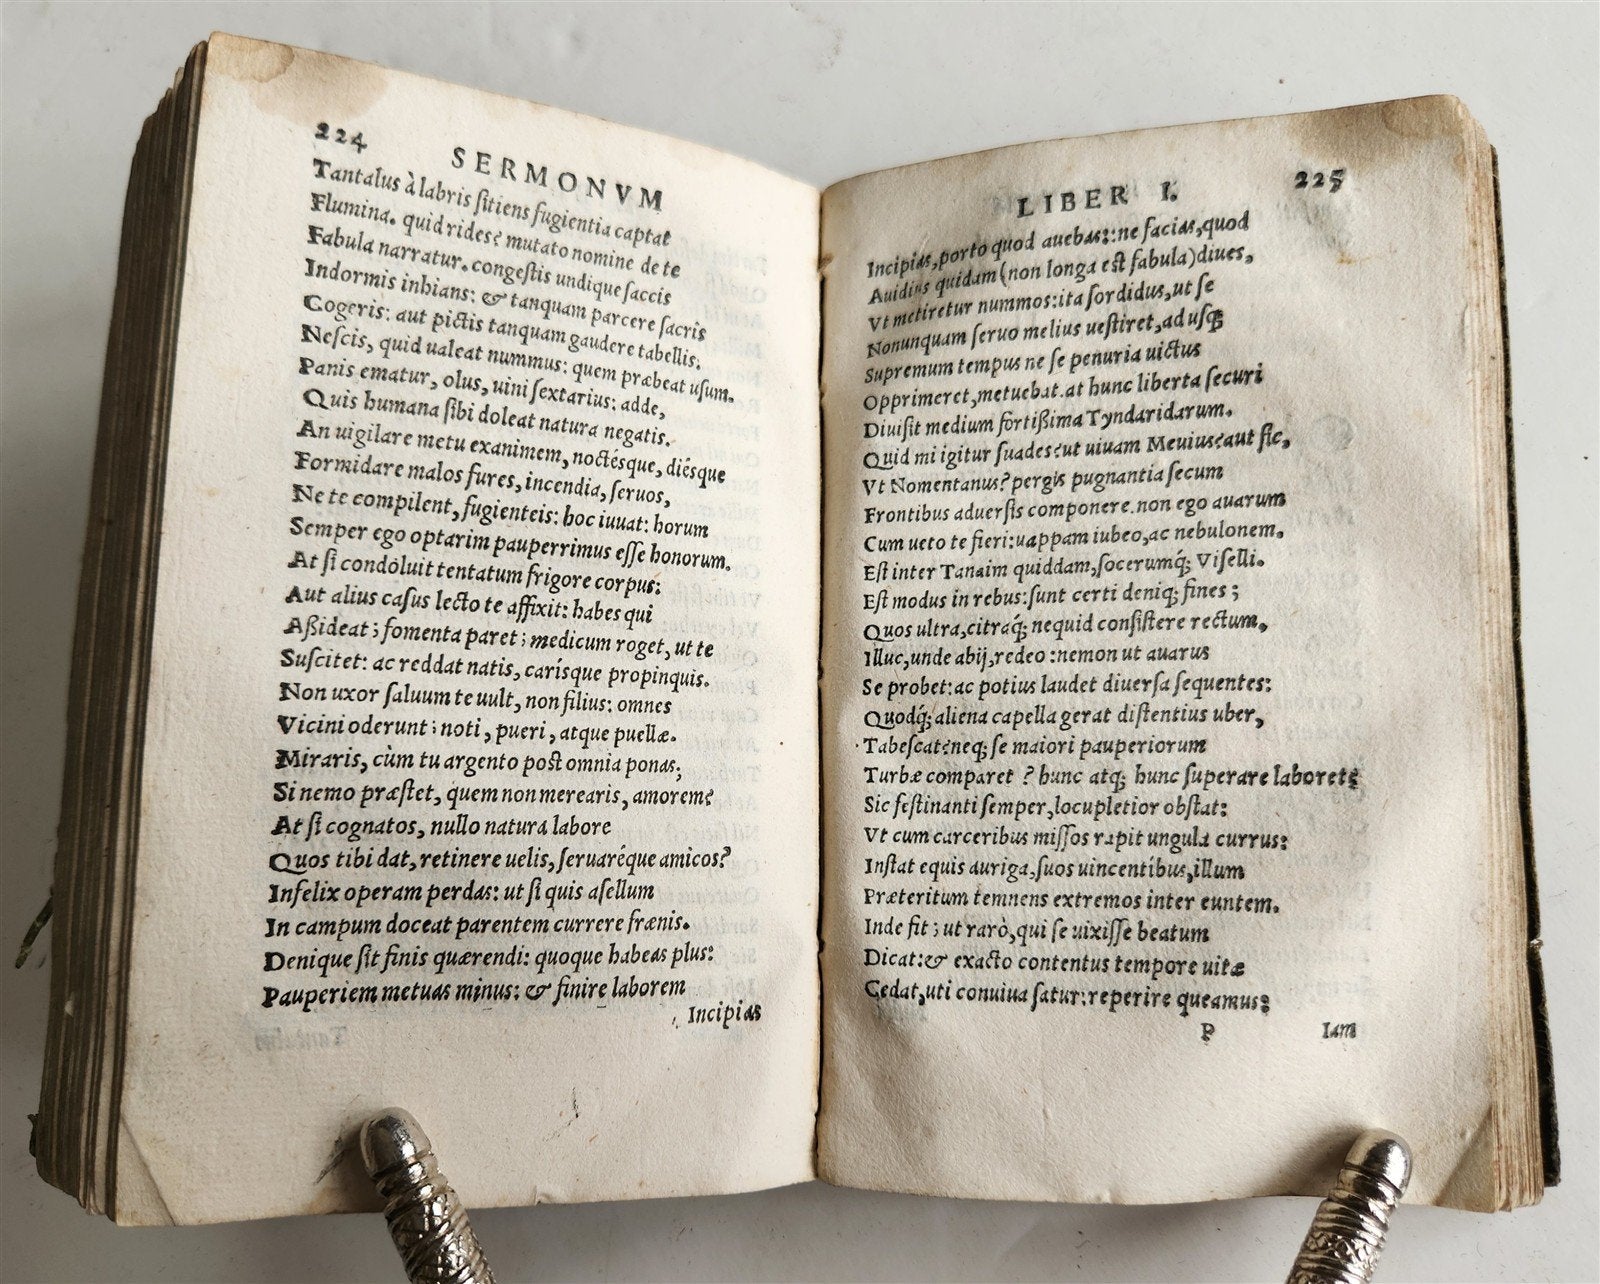 224 SERMONVM
Tantalus à labris ſitiens fugientia captat
Flumina. quid rides? mutato nomine de te
Fabula narratur. congeſtis undique ſaccis
Indormis inhians: & tanquam parcere ſacris
Cogeris: aut pictis tanquam gaudere tabellis:
Neſcis, quid ualeat nummus: quem præbeat uſum.
Panis ematur, olus, uini ſextarius: adde,
Quis humana ſibi doleat natura negatis.
An uigilare metu exanimem, noctésque, diésque
Formidare malos fures, incendia, ſeruos,
Ne te compilent, fugienteis: hoc iuuat: horum
Semper ego optarim pauperrimus eſſe honorum.
At ſi condoluit tentatum frigore corpus:
Aut alius caſus lecto te affixit: habes qui
Aßideat; fomenta paret; medicum roget, ut te
Suſcitet: ac reddat natis, carísque propinquis.
Non uxor ſaluum te uult, non filius: omnes
Vicini oderunt; noti, pueri, atque puellæ.
Miraris, cùm tu argento poſt omnia ponas;
Si nemo præſtet, quem non merearis, amorem?
At ſi cognatos, nullo natura labore
Quos tibi dat, retinere uelis, ſeruaréque amicos?
Infelix operam perdas: ut ſi quis aſellum
In campum doceat parentem currere frænis.
Denique ſit finis quærendi: quoque habeas plus:
Pauperiem metuas minus: & finire laborem
Incipias
LIBER I. 225
Incipias, porto quod auebas: ne facias, quod
Auidius quidam (non longa eſt fabula) diues,
Vt metiretur nummos: ita ſordidus, ut ſe
Nonunquam ſeruo melius ueſtiret, ad uſq;
Supremum tempus ne ſe penuria uictus
Opprimeret, metuebat. at hunc liberta ſecuri
Diuiſit medium fortißima Tyndaridarum.
Quid mi igitur ſuades? ut uiuam Meuius? aut ſic,
Vt Nomentanus? pergis pugnantia ſecum
Frontibus aduerſis componere. non ego auarum
Cum ueto te fieri: uappam iubeo, ac nebulonem.
Eſt inter Tanaim quiddam, ſocerumq́; Viſelli.
Eſt modus in rebus: ſunt certi deniq; fines;
Quos ultra, citraq́; nequid conſiſtere rectum,
Illuc, unde abij, redeo: nemon ut auarus
Se probet: ac potius laudet diuerſa ſequentes:
Quodq́; aliena capella gerat diſtentius uber,
Tabeſcat? neq; ſe maiori pauperiorum
Turbæ comparet? hunc atq; hunc ſuperare laboret?
Sic feſtinanti ſemper, locupletior obſtat:
Vt cum carceribus miſſos rapit ungula currus:
Inſtat equis auriga, ſuos uincentibus, illum
Præteritum temnens extremos inter euntem.
Inde fit; ut rarò, qui ſe uixiſſe beatum
Dicat: & exacto contentus tempore uitæ
Cedat, uti conuiua ſatur: reperire queamus:
P Iam